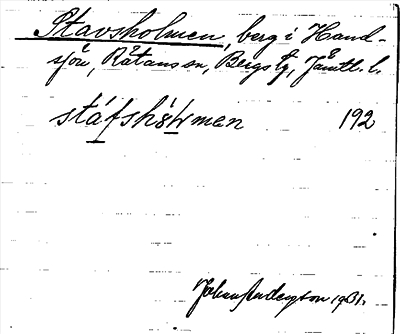 Stavsholmen, berg i Hand-
sjön, Råtans sn, Bergs tg, Jämtl. l.
stáfshòłmen 192
Johan Anderzson 1931.